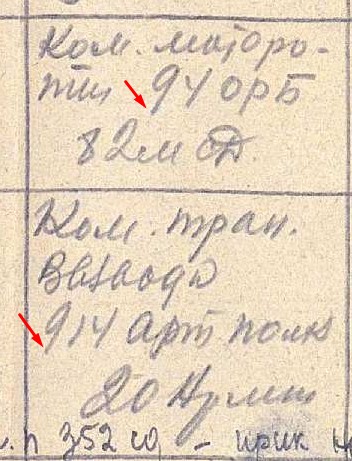 Ком. маторо-
ты 94 орб
82 м СД.
Ком. тран.
Взвода
914 арт полк
20 Армии
п 352 сд - прик